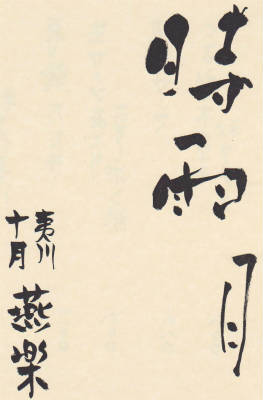 時雨月
夷川
十月
燕楽